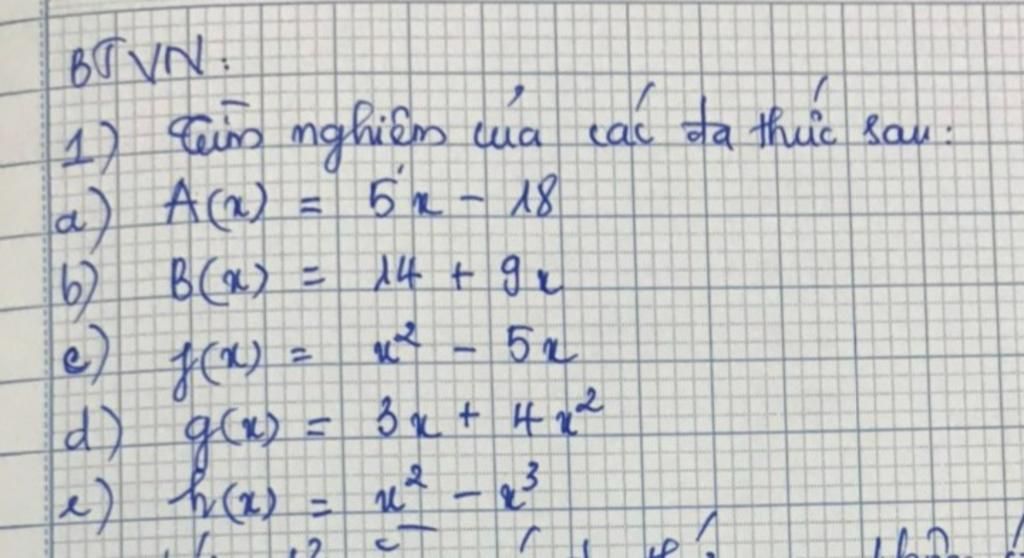 BTVN:
1) Tìm nghiệm của các đa thức sau:
a) A(x) = 5x - 18
b) B(x) = 14 + 9x
c) f(x) = x² - 5x
d) g(x) = 3x + 4x²
e) h(x) = x² - x³